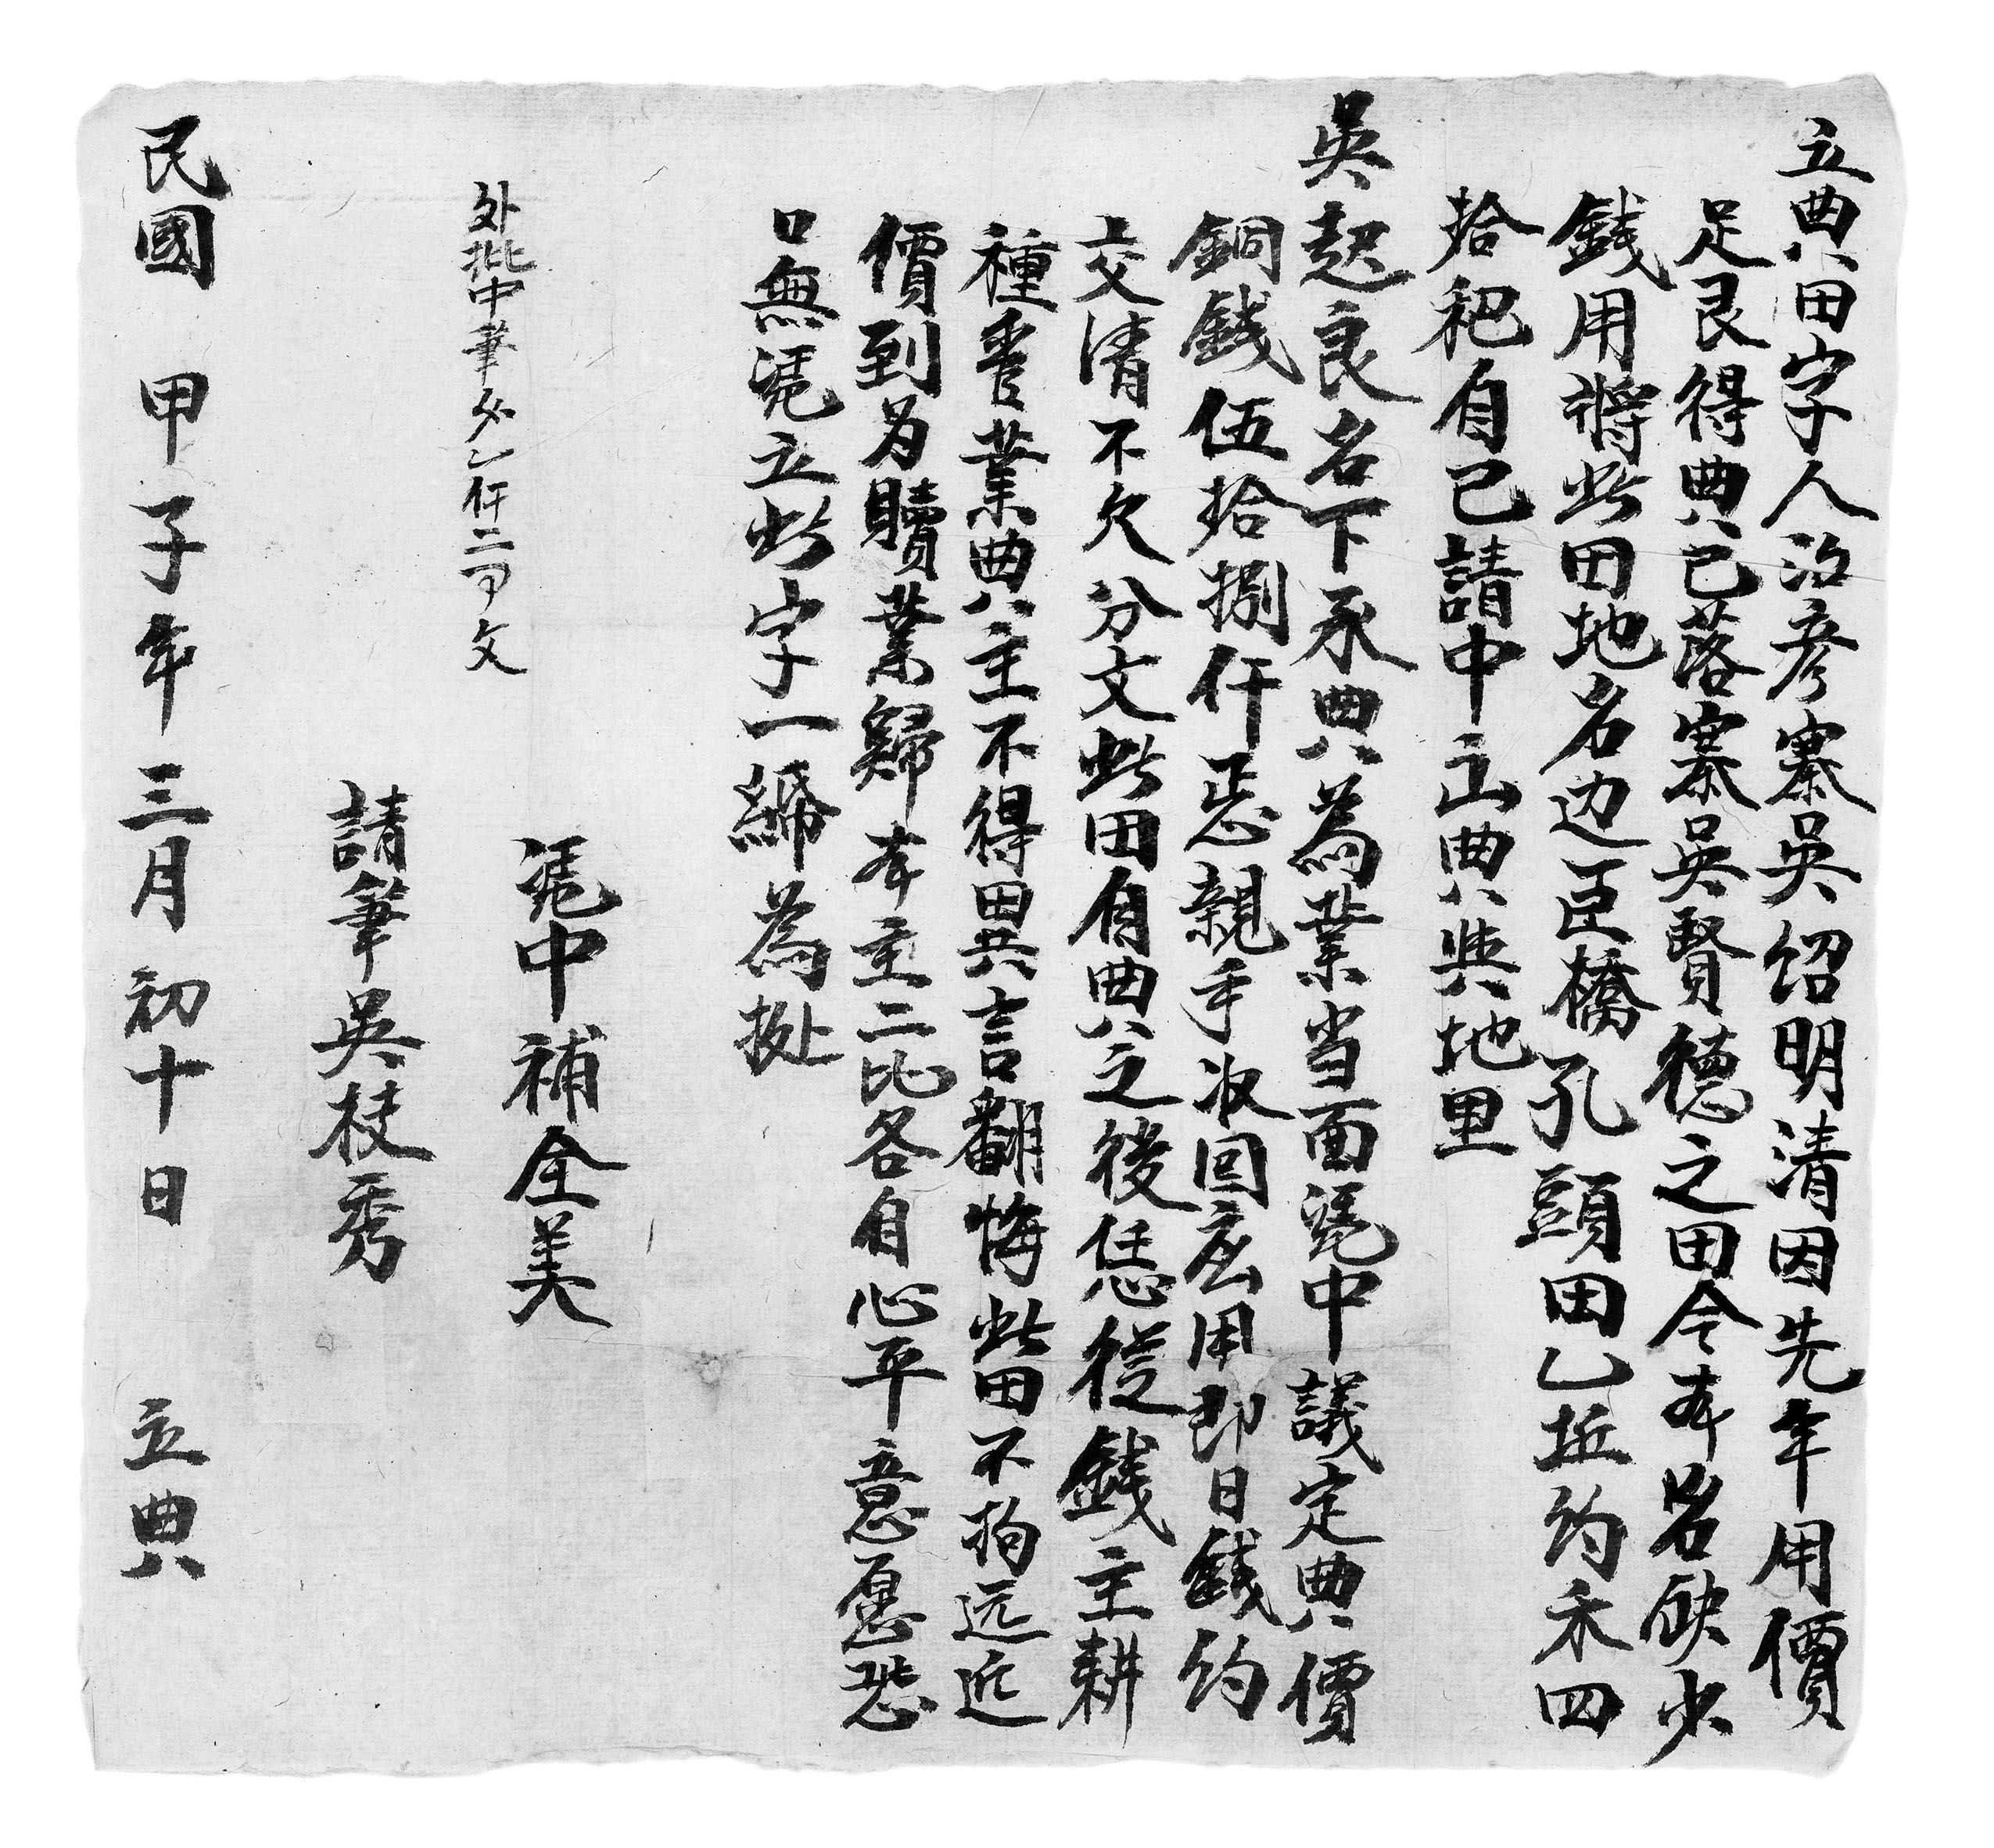 立典田字人治彦寨吴绍明清因先年用價
足艮得典己落寨吳賢德之田今本名缺少
銭用將此田地名边臣橋孔頭田乙坵约禾四
拾祀自己請中立典與地里
吳起良名下承典為業当面凴中議定典價
銅錢伍拾捌仟㤙親手收回应用即日銭约
交清不欠分文此田自典之後任恁從銭主耕
種管業典主不得異言翻悔此田不拘远近
價到为贖業歸本主二比各自心平意愿恐
口無凴立此字一紙為㨿
凴中補全美
外批中筆多仟二百文
請筆吳枝秀
民國甲子年三月初十日立典